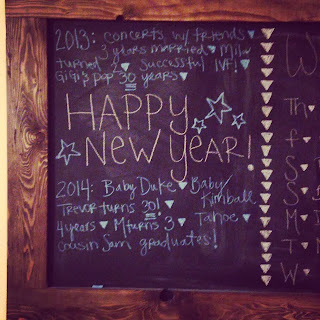 2013: concerts w/ friends
3 years married
turned Successful IVF!
GiGi's pop 30 years
HAPPY
NEW YEAR!
2014: Baby Duke Baby
Kimball
Trevor turns 30!
4 years M turns 3 Tahoe
cousin Sam graduates!
W
Th
F
S
S
M
T
W